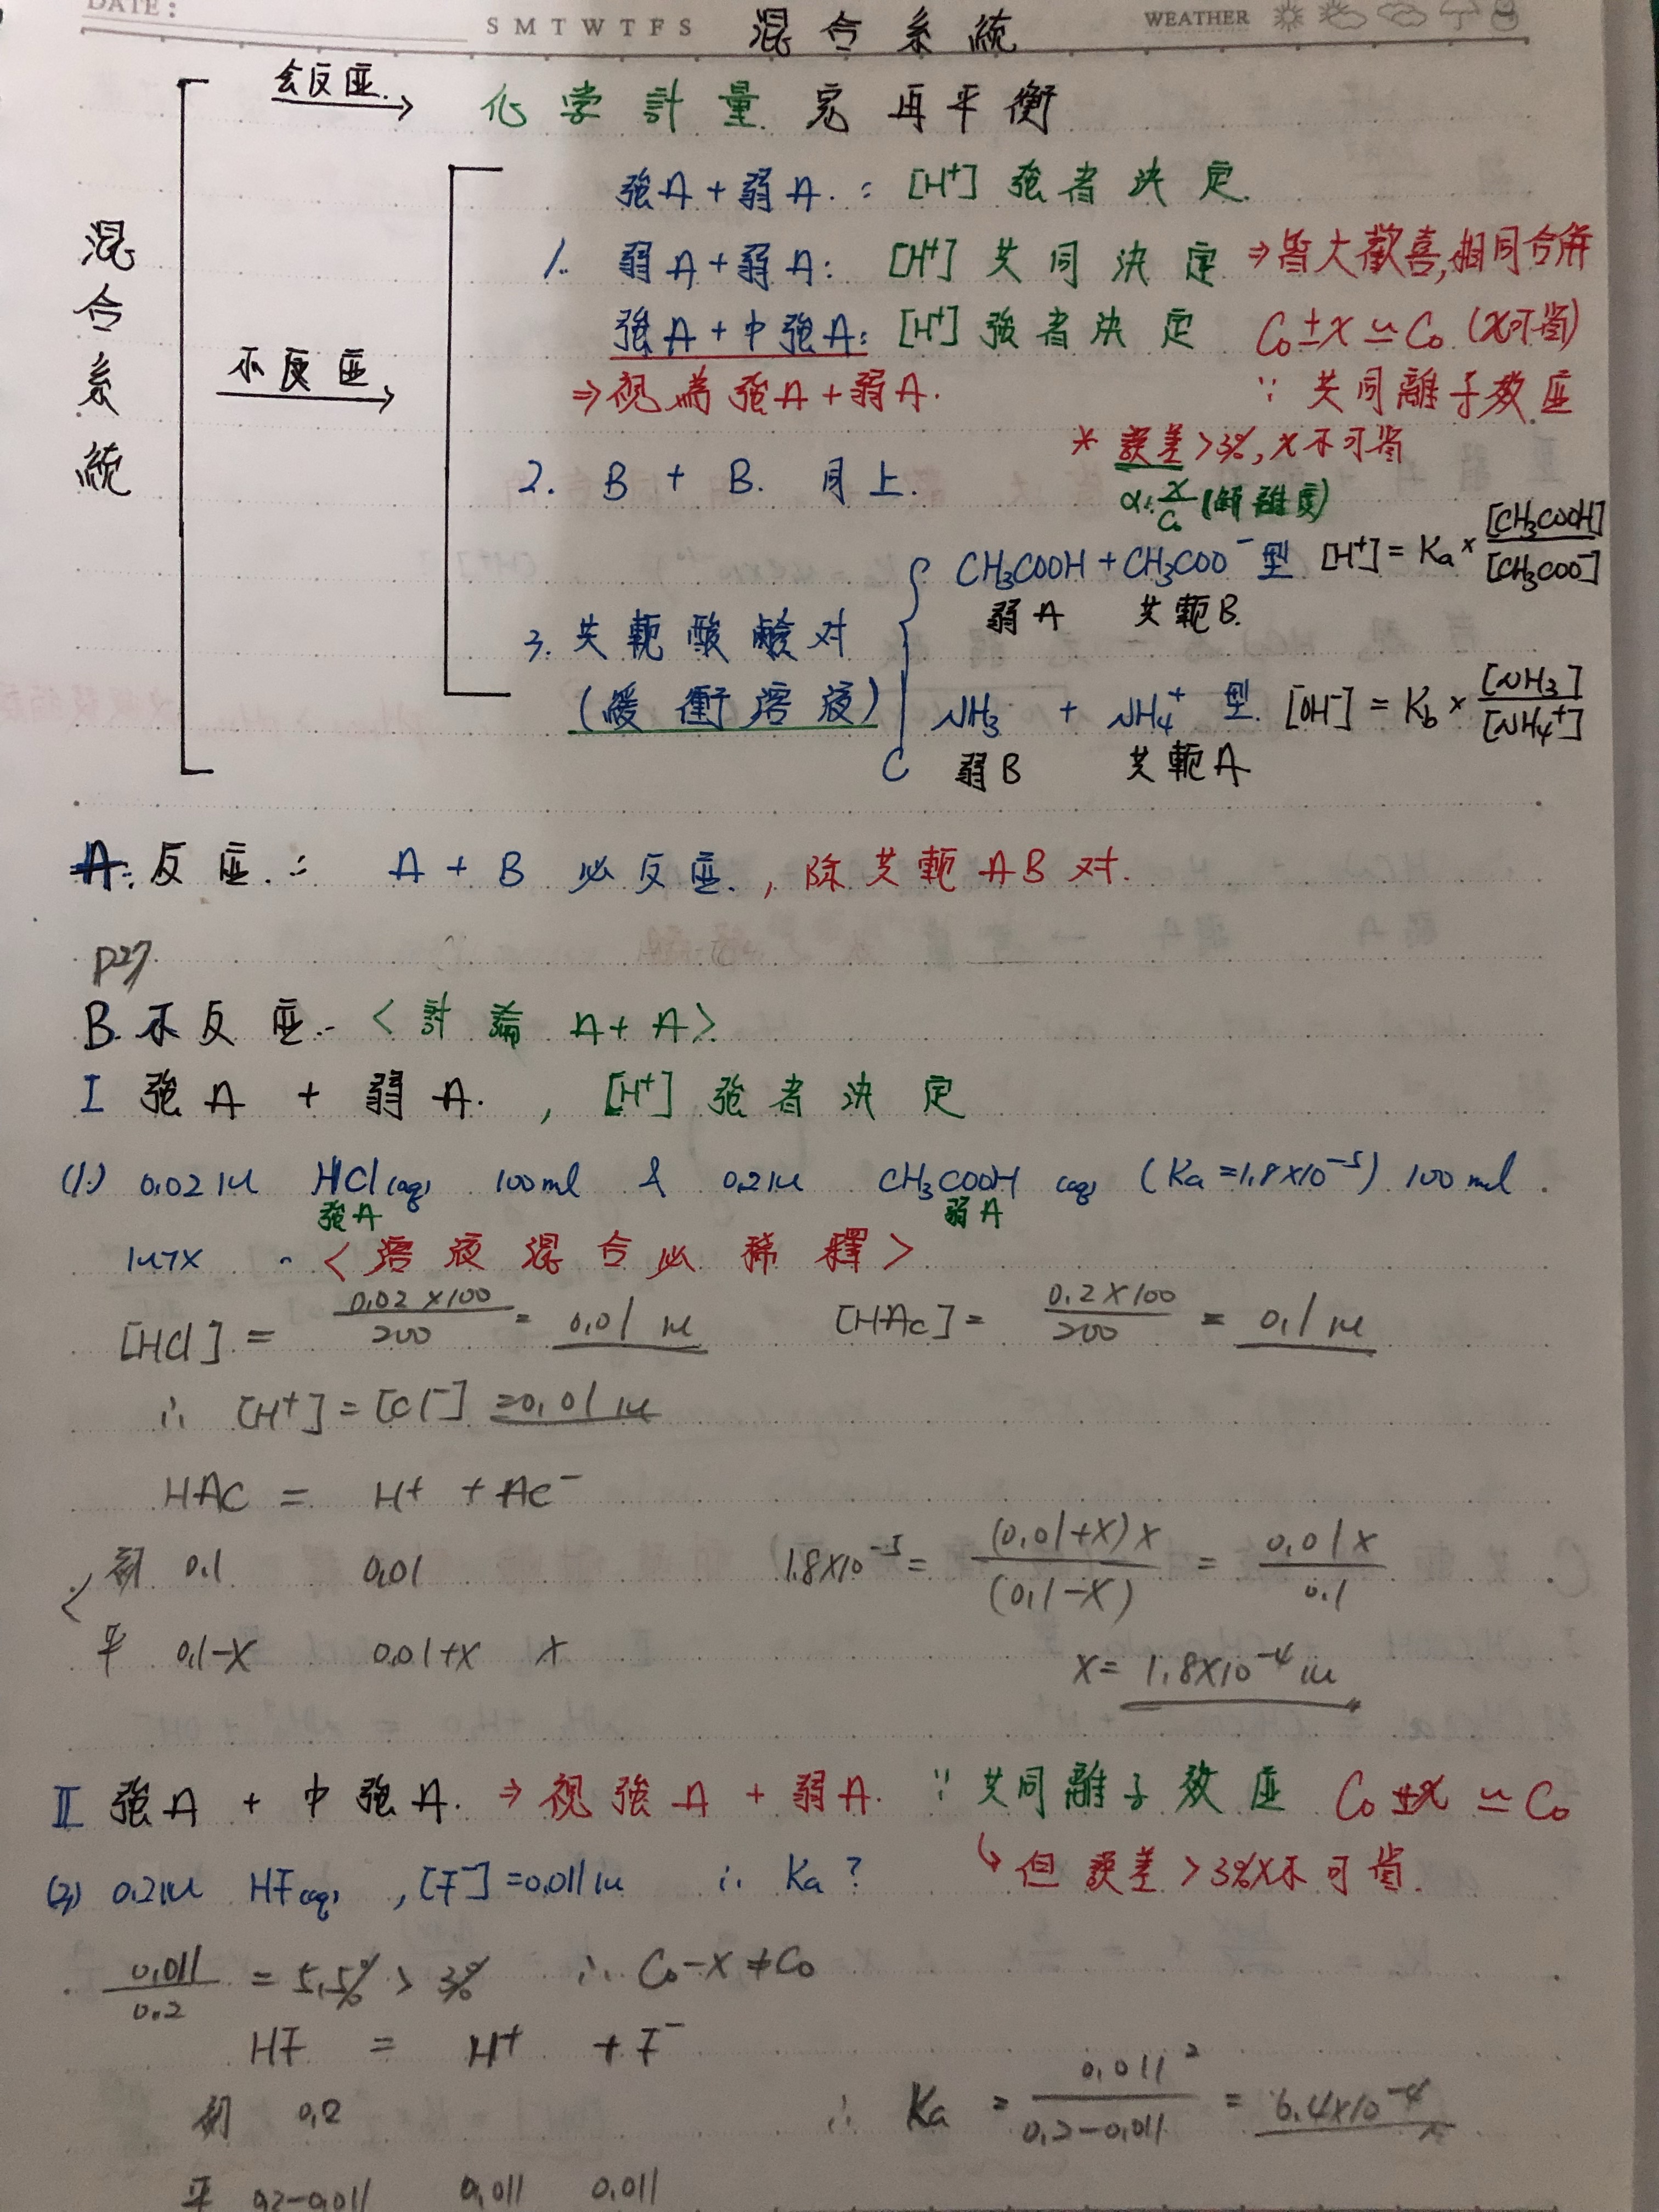 DATE :
S M T W T F S 混合系統 WEATHER
会反应. → 化学計量完再平衡
混合系統
不反应 →
強A + 弱A. : [H⁺] 強者決定.
1. 弱A + 弱A: [H⁺] 共同決定 ⇒ 皆大歡喜,相同合併
強A + 中強A: [H⁺] 強者決定 C₀±x ≃ C₀ (x可省)
⇒ 視為強A + 弱A. ∵ 共同離子效应
* 誤差>3%, x不可省
2. B + B. 同上. α: x/C₀ (解離度)
3. 共軛酸鹼对 (緩衝溶液)
CH₃COOH + CH₃COO⁻ 型 [H⁺] = Ka × [CH₃COOH]/[CH₃COO⁻]
弱A 共軛B.
NH₃ + NH₄⁺ 型. [OH⁻] = Kb × [NH₃]/[NH₄⁺]
弱B 共軛A
A: 反应.: A + B 必反应., 除共軛AB对.
P27.
B. 不反应.- <討論 A + A>
I 強A + 弱A. , [H⁺] 強者決定
(1.) 0.02M HCl(aq) 100ml & 0.2M CH₃COOH (aq) (Ka=1.8×10⁻⁵) 100ml.
強A 弱A
<溶液混合必稀釋>
[HCl] = 0.02×100/200 = 0.01M [HAc] = 0.2×100/200 = 0.1M
∴ [H⁺] = [Cl⁻] = 0.01M
HAc = H⁺ + Ac⁻
初 0.1 0.01 1.8×10⁻⁵ = (0.01+x)x/(0.1-x) = 0.01x/0.1
平 0.1-x 0.01+x x x = 1.8×10⁻⁴M
II 強A + 中強A. ⇒ 視強A + 弱A. ∵ 共同離子效应 C₀±x ≃ C₀
↳ 但誤差>3%x不可省.
(2) 0.2M HF(aq) , [F⁻]=0.011M ∴ Ka?
0.011/0.2 = 5.5% > 3% ∴ C₀-x ≠ C₀
HF = H⁺ + F⁻
初 0.2 ∴ Ka = 0.011²/(0.2-0.011) = 6.4×10⁻⁴
平 0.2-0.011 0.011 0.011